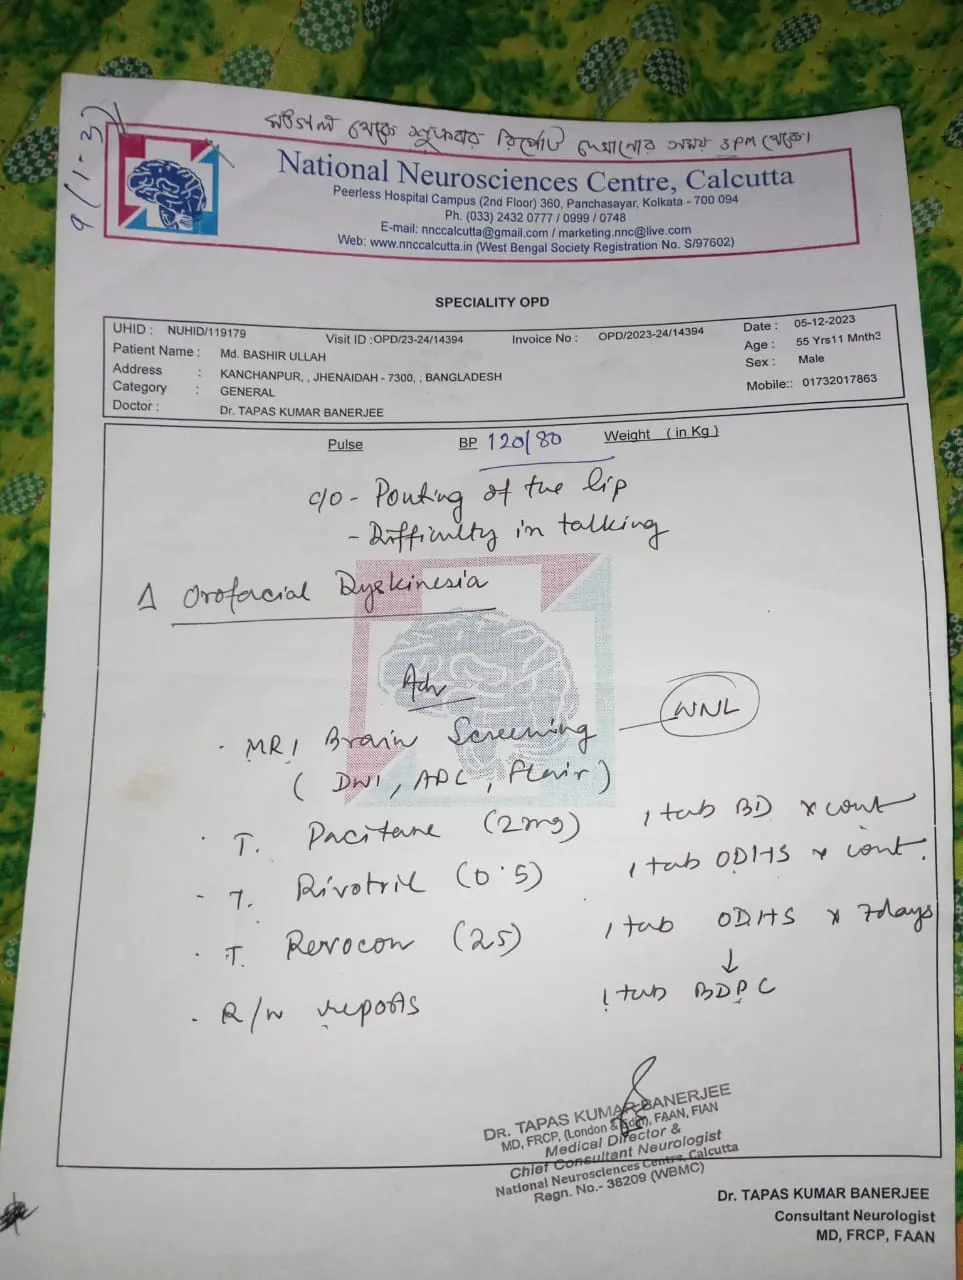 মঙ্গল থেকে শুক্রবার রিপোর্ট দেখানোর সময় 3PM থেকে।
National Neurosciences Centre, Calcutta
Peerless Hospital Campus (2nd Floor) 360, Panchasayar, Kolkata - 700 094
Ph. (033) 2432 0777 / 0999 / 0748
E-mail: nnccalcutta@gmail.com / marketing.nnc@live.com
Web: www.nnccalcutta.in (West Bengal Society Registration No. S/97602)
SPECIALITY OPD
UHID : NUHID/119179 Visit ID :OPD/23-24/14394 Invoice No : OPD/2023-24/14394 Date : 05-12-2023
Patient Name : Md. BASHIR ULLAH Age : 55 Yrs11 Mnth3
Address : KANCHANPUR, , JHENAIDAH - 7300, , BANGLADESH Sex : Male
Category : GENERAL Mobile:: 01732017863
Doctor : Dr. TAPAS KUMAR BANERJEE
Pulse BP 120/80 Weight ( in Kg )
c/o - Pouting of the lip
- Difficulty in talking
Δ Orofacial Dyskinesia
Adv
· MRI Brain Screening — WNL
( DWI, ADC, Flair )
· T. Pacitane (2mg) 1 tab BD x cont
- T. Rivotril (0.5) 1 tab ODHS x cont.
· T. Revocon (25) 1 tab ODHS x 7days
↓
1 tab BDPC
· R/w reports
DR. TAPAS KUMAR BANERJEE
MD, FRCP, (London & Edin), FAAN, FIAN
Medical Director &
Chief Consultant Neurologist
National Neurosciences Centre, Calcutta
Regn. No.- 38209 (WBMC)
Dr. TAPAS KUMAR BANERJEE
Consultant Neurologist
MD, FRCP, FAAN